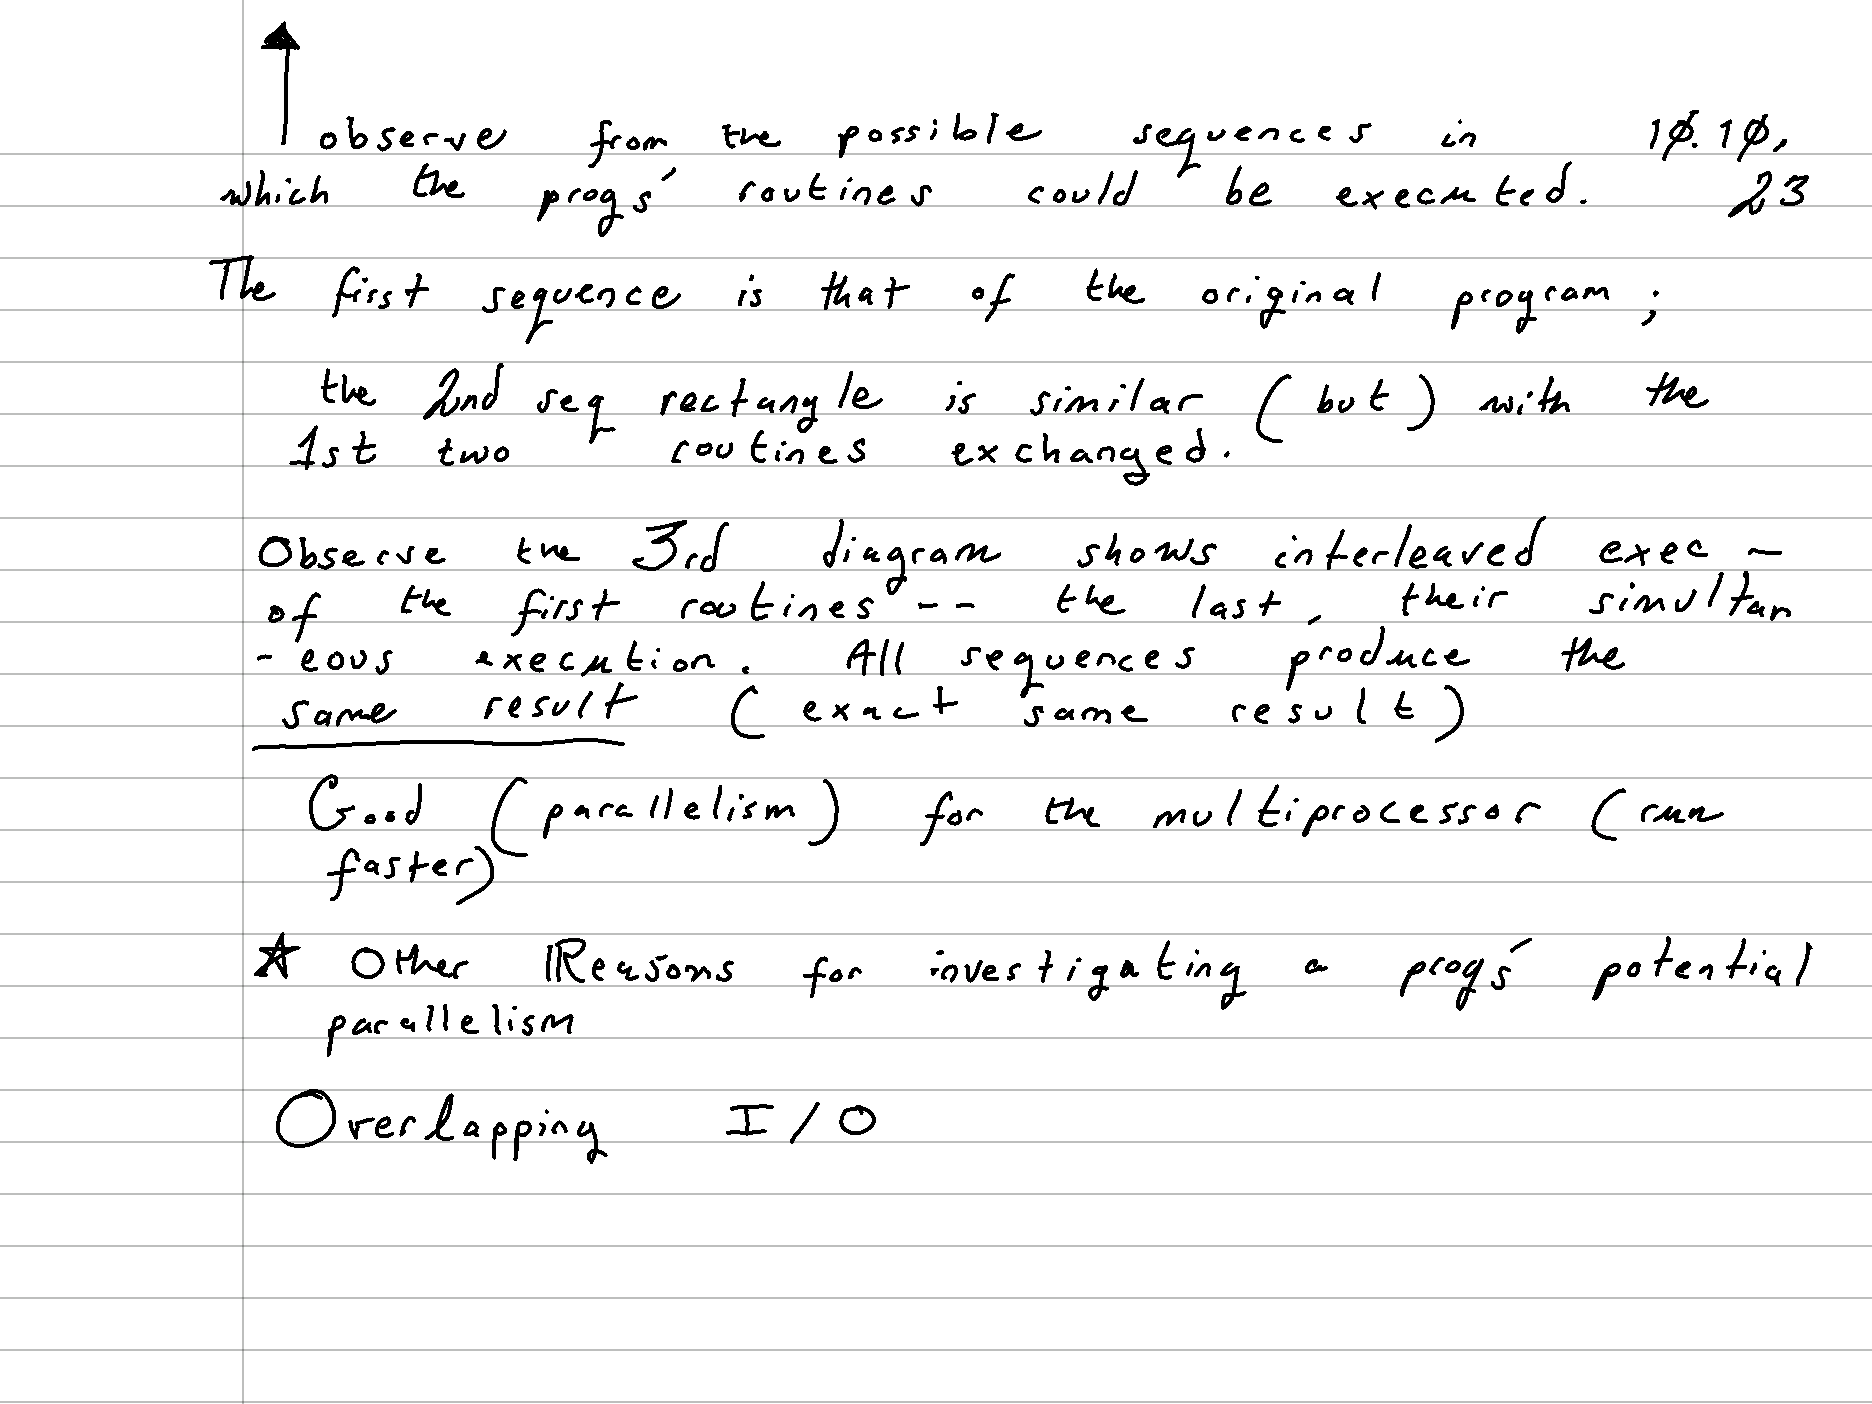 observe from the possible sequences in 10.10,
which the progs' routines could be executed. 23
The first sequence is that of the original program ;
the 2nd seq rectangle is similar (but) with the
1st two routines exchanged.
Observe the 3rd diagram shows interleaved exec -
of the first routines -- the last, their simultan
- eous execution. All sequences produce the
same result (exact same result)
Good (parallelism) for the multiprocessor (run
faster)
☆ Other Reasons for investigating a progs' potential
parallelism
Overlapping I/O